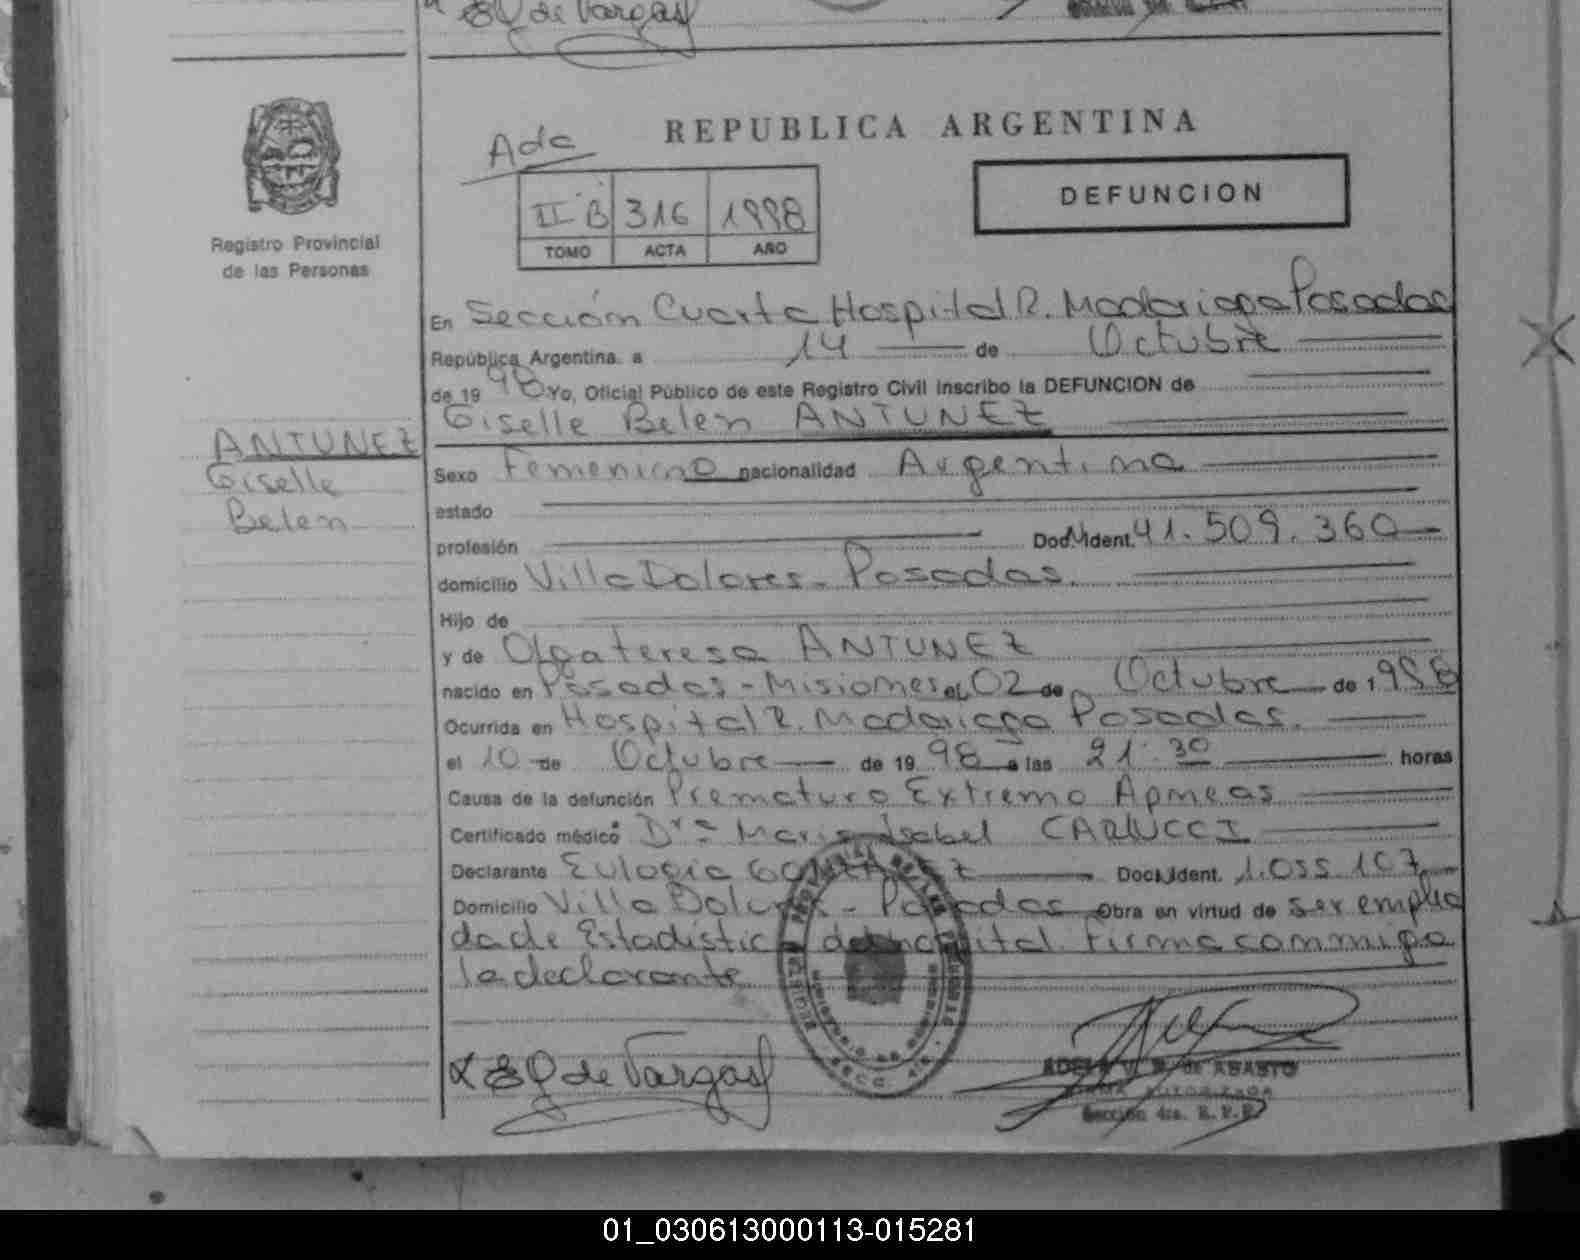 EQ de Vargas
Registro Provincial
de las Personas
ANTUNEZ
Giselle
Belen
REPUBLICA ARGENTINA
DEFUNCION
II B 316 1998
TOMO ACTA AÑO
En Sección Cuarta Hospital R. Madariaga Posadas
República Argentina. a 14 de Octubre
de 19 98 Yo, Oficial Público de este Registro Civil inscribo la DEFUNCION de
Giselle Belen ANTUNEZ
Sexo Femenino nacionalidad Argentina
estado
profesión Doc. Ident. 41.509.360
domicilio Villa Dolores - Posadas.
Hijo de
y de Olga teresa ANTUNEZ
nacido en Posadas - Misiones el 02 de Octubre de 1998
Ocurrida en Hospital R. Madariaga Posadas.
el 10 de Octubre de 19 98 a las 21:30 horas
Causa de la defunción Prematuro Extremo Apneas
Certificado médico Dra. Maria Isabel CARLUCCI
Declarante Eulogia Doc. Ident. 1.055.107
Domicilio Villa Dolores - Posadas Obra en virtud de ser emplea
da de Estadistica del hospital. Firma conmigo
la declarante
EQ de Vargas
de ABASTO
AUTORIZADA
Sección 4ta. R.P.P.
01_030613000113-015281